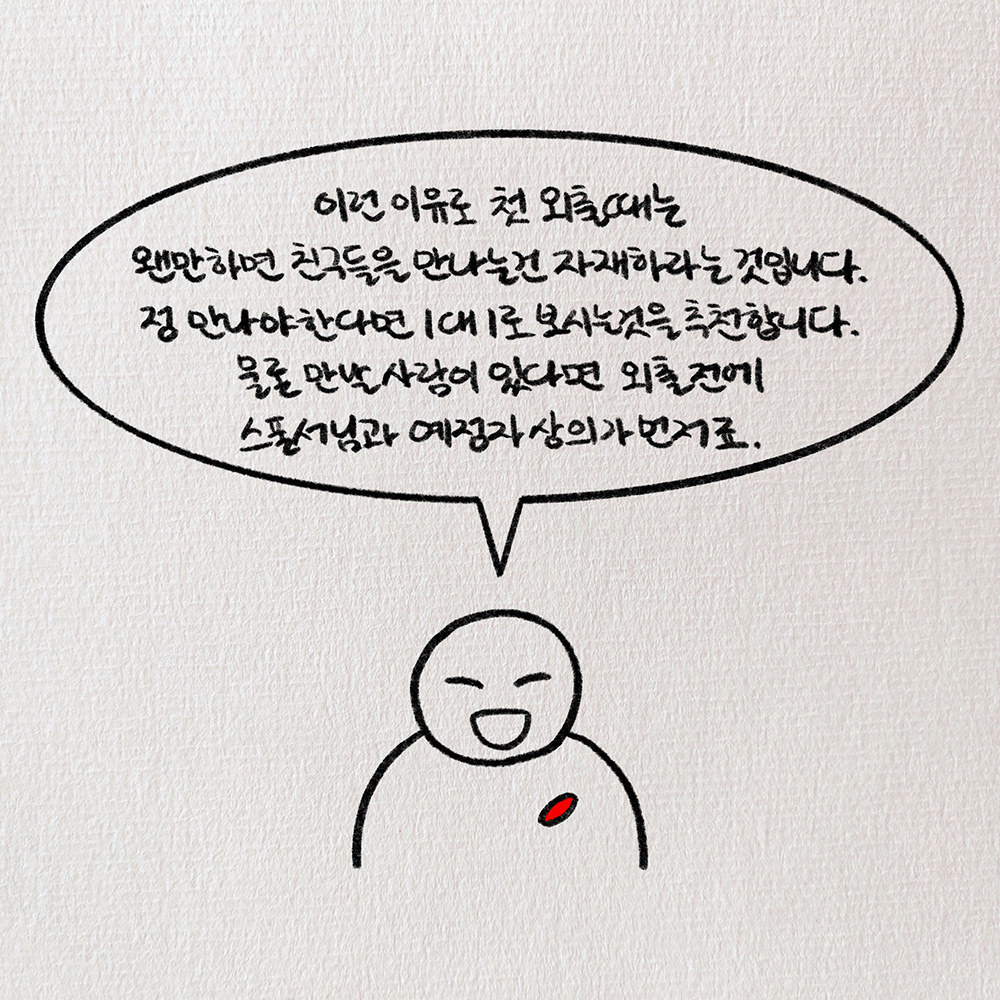 이런 이유로 첫 외출때는
왠만하면 친구들을 만나는건 자재하라는 것입니다.
정 만나야한다면 1대1로 보시는것을 추천합니다.
물론 만날 사람이 있다면 외출 전에
스폰서님과 예정자 상의가 먼저죠.